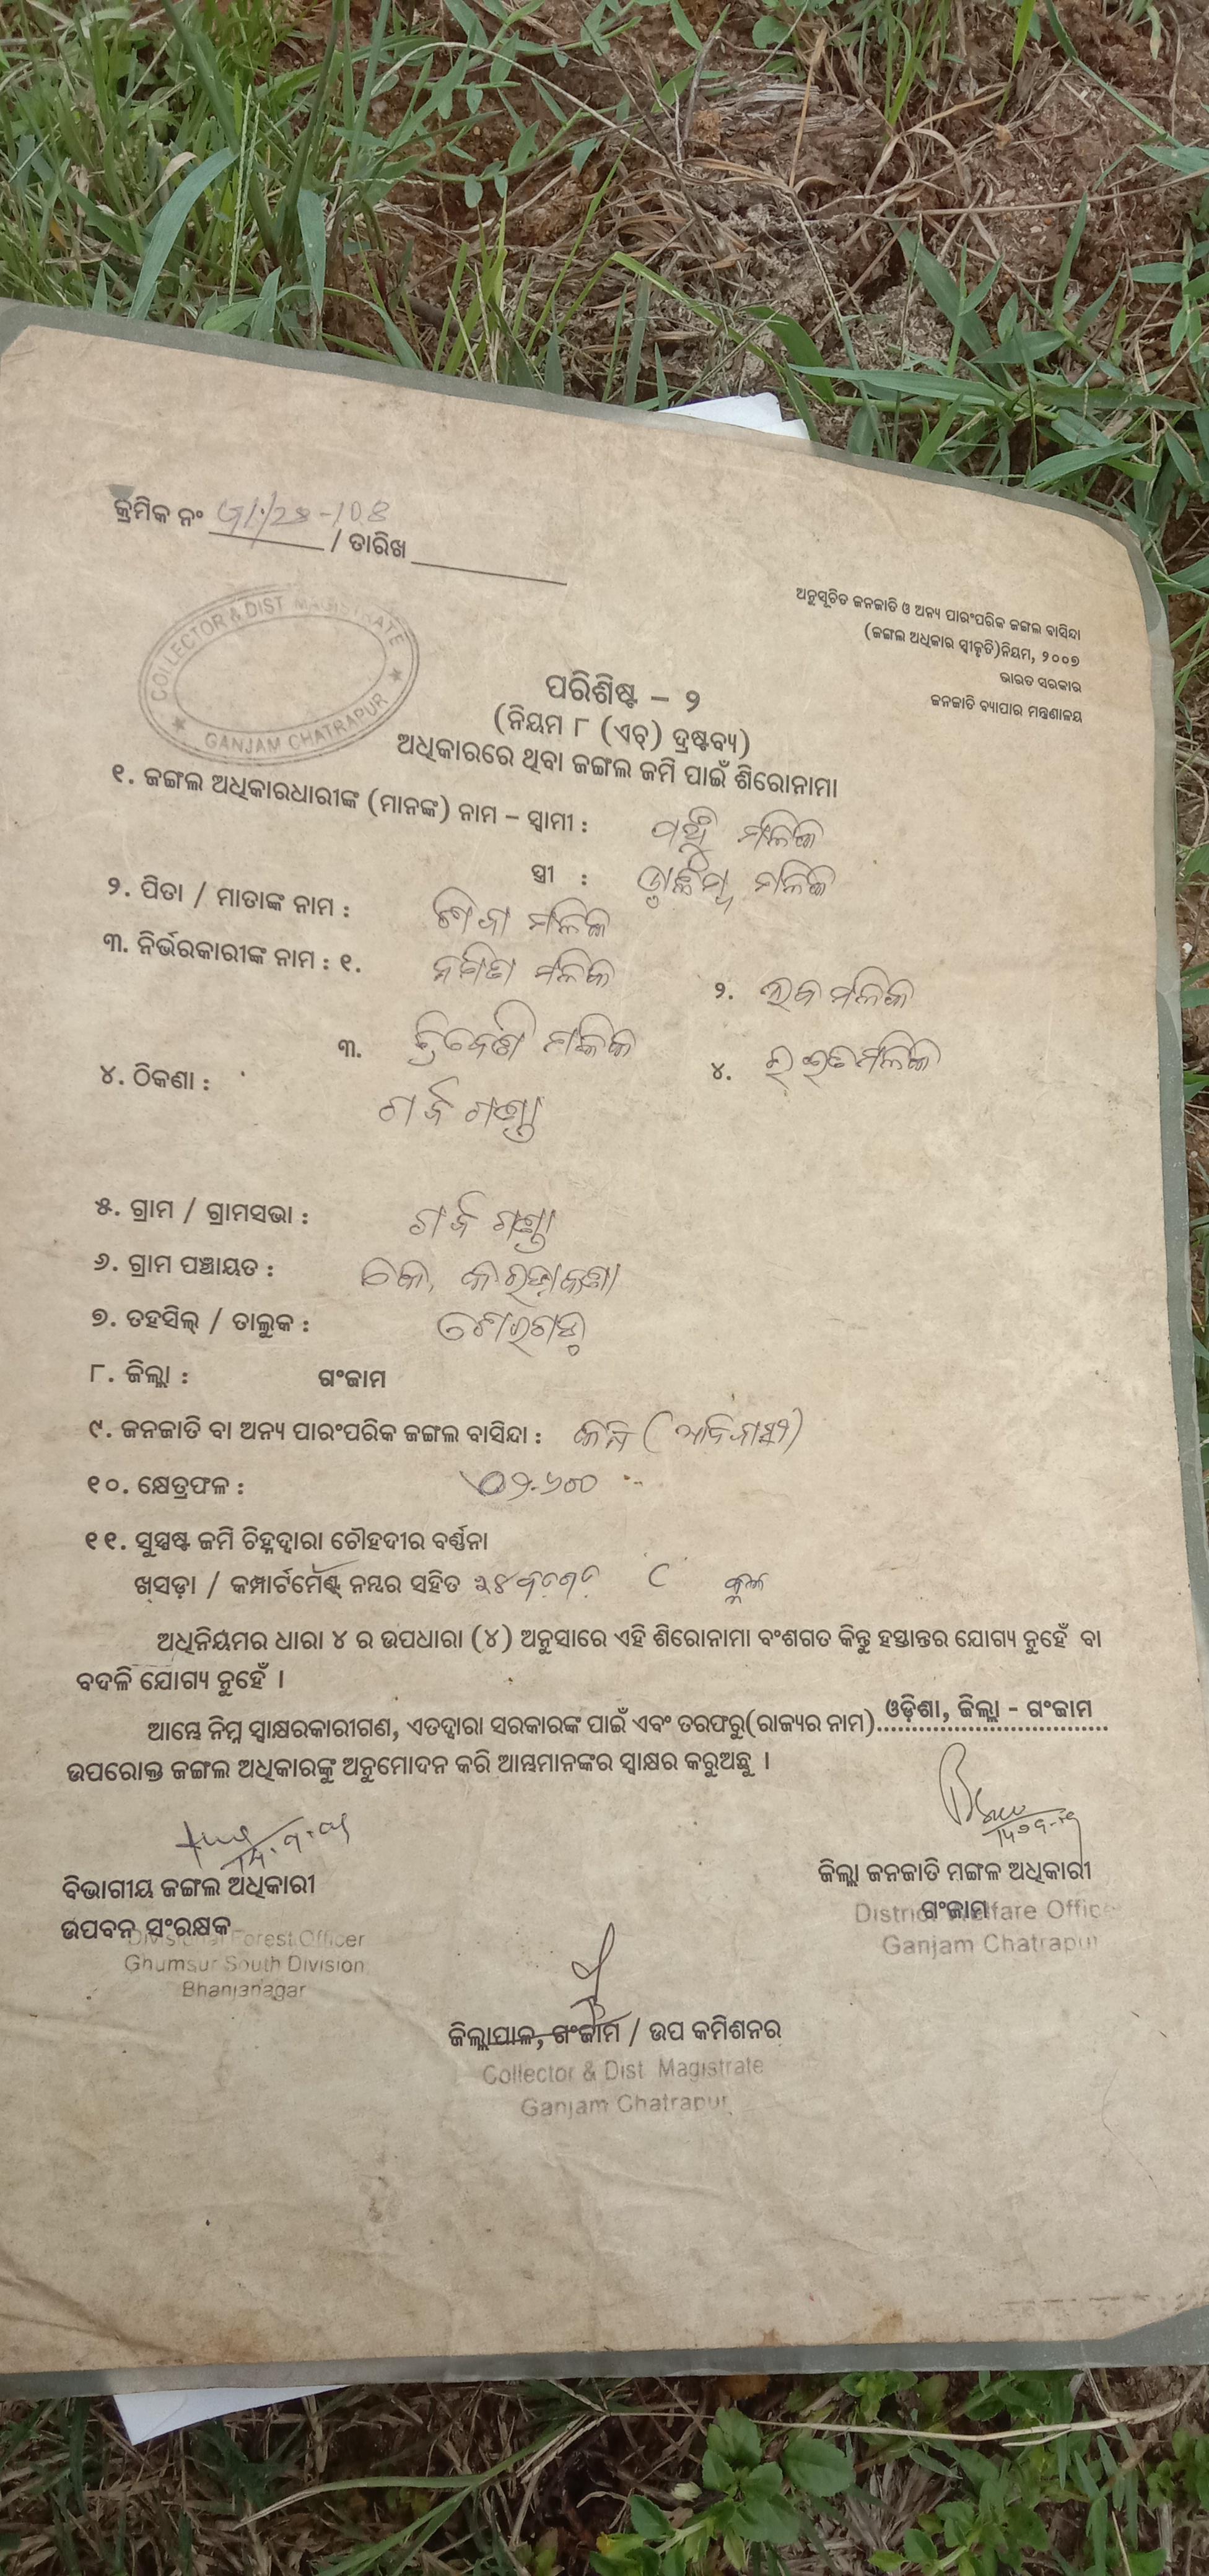 କ୍ରମିକ ନଂ
/ ତାରିଖ
COLLECTOR & DIST MAGISTRATE
GANJAM CHATRAPUR
ଅନୁସୂଚିତ ଜନଜାତି ଓ ଅନ୍ୟ ପାରଂପରିକ ଜଙ୍ଗଲ ବାସିନ୍ଦା
(ଜଙ୍ଗଲ ଅଧିକାର ସ୍ୱୀକୃତି)ନିୟମ, ୨୦୦୭
ଭାରତ ସରକାର
ଜନଜାତି ବ୍ୟାପାର ମନ୍ତ୍ରଣାଳୟ
ପରିଶିଷ୍ଟ – ୨
(ନିୟମ ୮ (ଏଚ୍) ଦ୍ରଷ୍ଟବ୍ୟ)
ଅଧିକାରରେ ଥିବା ଜଙ୍ଗଲ ଜମି ପାଇଁ ଶିରୋନାମା
୧. ଜଙ୍ଗଲ ଅଧିକାରଧାରୀଙ୍କ (ମାନଙ୍କ) ନାମ – ସ୍ୱାମୀ : ମଲିକ
ସ୍ତ୍ରୀ : ମଲିକ
୨. ପିତା / ମାତାଙ୍କ ନାମ : ମଲିକ
୩. ନିର୍ଭରକାରୀଙ୍କ ନାମ : ୧. ନମିତା ମଲିକ ୨. ଲବ ମଲିକ
୩. ତ୍ରିବେଣୀ ମଲିକ ୪. ମଲିକ
୪. ଠିକଣା :
୫. ଗ୍ରାମ / ଗ୍ରାମସଭା :
୬. ଗ୍ରାମ ପଞ୍ଚାୟତ : କେ.
୭. ତହସିଲ୍ / ତାଲୁକ : ଶେରଗଡ଼
୮. ଜିଲ୍ଲା : ଗଂଜାମ
୯. ଜନଜାତି ବା ଅନ୍ୟ ପାରଂପରିକ ଜଙ୍ଗଲ ବାସିନ୍ଦା : (ଆଦିବାସୀ)
୧୦. କ୍ଷେତ୍ରଫଳ :
୧୧. ସୁସ୍ପଷ୍ଟ ଜମି ଚିହ୍ନଦ୍ୱାରା ଚୌହଦୀର ବର୍ଣ୍ଣନା
ଖସଡ଼ା / କମ୍ପାର୍ଟମେଣ୍ଟ ନମ୍ବର ସହିତ
ଅଧିନିୟମର ଧାରା ୪ ର ଉପଧାରା (୪) ଅନୁସାରେ ଏହି ଶିରୋନାମା ବଂଶଗତ କିନ୍ତୁ ହସ୍ତାନ୍ତର ଯୋଗ୍ୟ ନୁହେଁ ବା
ବଦଳି ଯୋଗ୍ୟ ନୁହେଁ ।
ଆମ୍ଭେ ନିମ୍ନ ସ୍ୱାକ୍ଷରକାରୀଗଣ, ଏତଦ୍ୱାରା ସରକାରଙ୍କ ପାଇଁ ଏବଂ ତରଫରୁ(ରାଜ୍ୟର ନାମ) ଓଡ଼ିଶା, ଜିଲ୍ଲା - ଗଂଜାମ
ଉପରୋକ୍ତ ଜଙ୍ଗଲ ଅଧିକାରଙ୍କୁ ଅନୁମୋଦନ କରି ଆମ୍ଭମାନଙ୍କର ସ୍ୱାକ୍ଷର କରୁଅଛୁ ।
ବିଭାଗୀୟ ଜଙ୍ଗଲ ଅଧିକାରୀ
ଉପବନ ସଂରକ୍ଷକ
Divisional Forest Officer
Ghumsur South Division
Bhanjanagar
ଜିଲ୍ଲା ଜନଜାତି ମଙ୍ଗଳ ଅଧିକାରୀ
ଗଂଜାମ
District Welfare Office
Ganjam Chatrapur
ଜିଲ୍ଲାପାଳ, ଗଂଜାମ / ଉପ କମିଶନର
Collector & Dist Magistrate
Ganjam Chatrapur